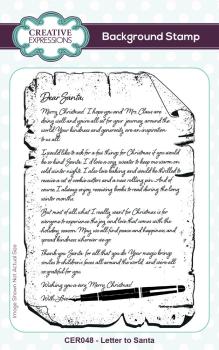 CREATIVE
EXPRESSIONS
Background Stamp
Dear Santa,
Merry Christmas! I hope you and Mrs. Claus are
doing well and you're all set for your journey around the
world. Your kindness and generosity are an inspiration
to us all.
I would like to ask for a few things for Christmas if you would
be so kind Santa. I'd love a cozy sweater to keep me warm on
cold winter nights. I also love baking and would be thrilled to
receive a set of cookie cutters and a new rolling pin. And of
course, I always enjoy receiving books to read during the long
winter months.
But most of all, what I really want for Christmas is for
everyone to experience the joy and love that comes with the
holiday season. May we all find peace and happiness, and
spread kindness wherever we go.
Thank you Santa, for all that you do. Your magic brings
smiles to children's faces all around the world, and we're all
so grateful for you.
Wishing you a very Merry Christmas!
With Love
Image Shown Not Actual Size
CER048 - Letter to Santa